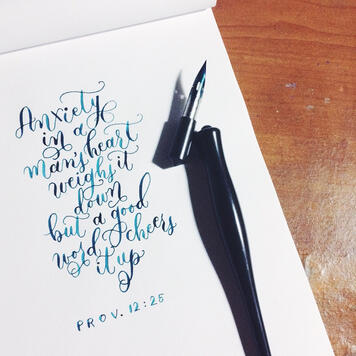 Anxiety
in a
man's heart
weighs it
down
but a good
word cheers
it up
PROV. 12:25